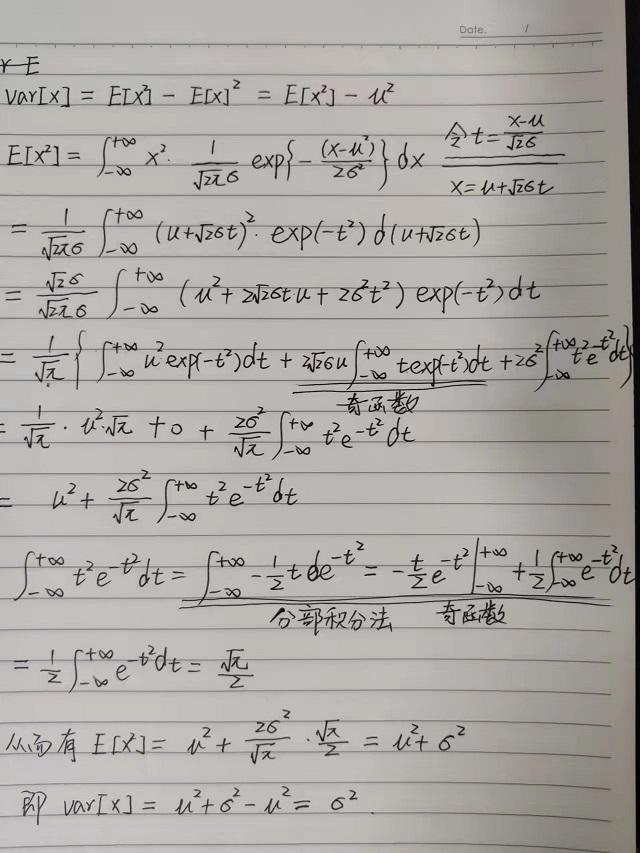 Date. /
var[x] = E[x²] - E[x]² = E[x²] - u²
E[x²] = ∫_{-∞}^{+∞} x²· 1/(√(2π)σ) exp{-(x-u²)/2σ²} dx 令 t = (x-u)/(√2σ) x = u+√2σt
= 1/(√(2π)σ) ∫_{-∞}^{+∞} (u+√2σt)²· exp(-t²) d(u+√2σt)
= √2σ/(√(2π)σ) ∫_{-∞}^{+∞} (u²+2√2σtu+2σ²t²) exp(-t²) dt
= 1/√π { ∫_{-∞}^{+∞} u² exp(-t²) dt + 2√2σu ∫_{-∞}^{+∞} t exp(-t²) dt + 2σ² ∫_{-∞}^{+∞} t² e^{-t²} dt }
奇函数
= 1/√π · u²·√π + 0 + 2σ²/√π ∫_{-∞}^{+∞} t² e^{-t²} dt
= u² + 2σ²/√π ∫_{-∞}^{+∞} t² e^{-t²} dt
∫_{-∞}^{+∞} t² e^{-t²} dt = ∫_{-∞}^{+∞} -1/2 t de^{-t²} = -t/2 e^{-t²} |_{-∞}^{+∞} + 1/2 ∫_{-∞}^{+∞} e^{-t²} dt
分部积分法 奇函数
= 1/2 ∫_{-∞}^{+∞} e^{-t²} dt = √π/2
从而有 E[x²] = u² + 2σ²/√π · √π/2 = u² + σ²
即 var[x] = u² + σ² - u² = σ².